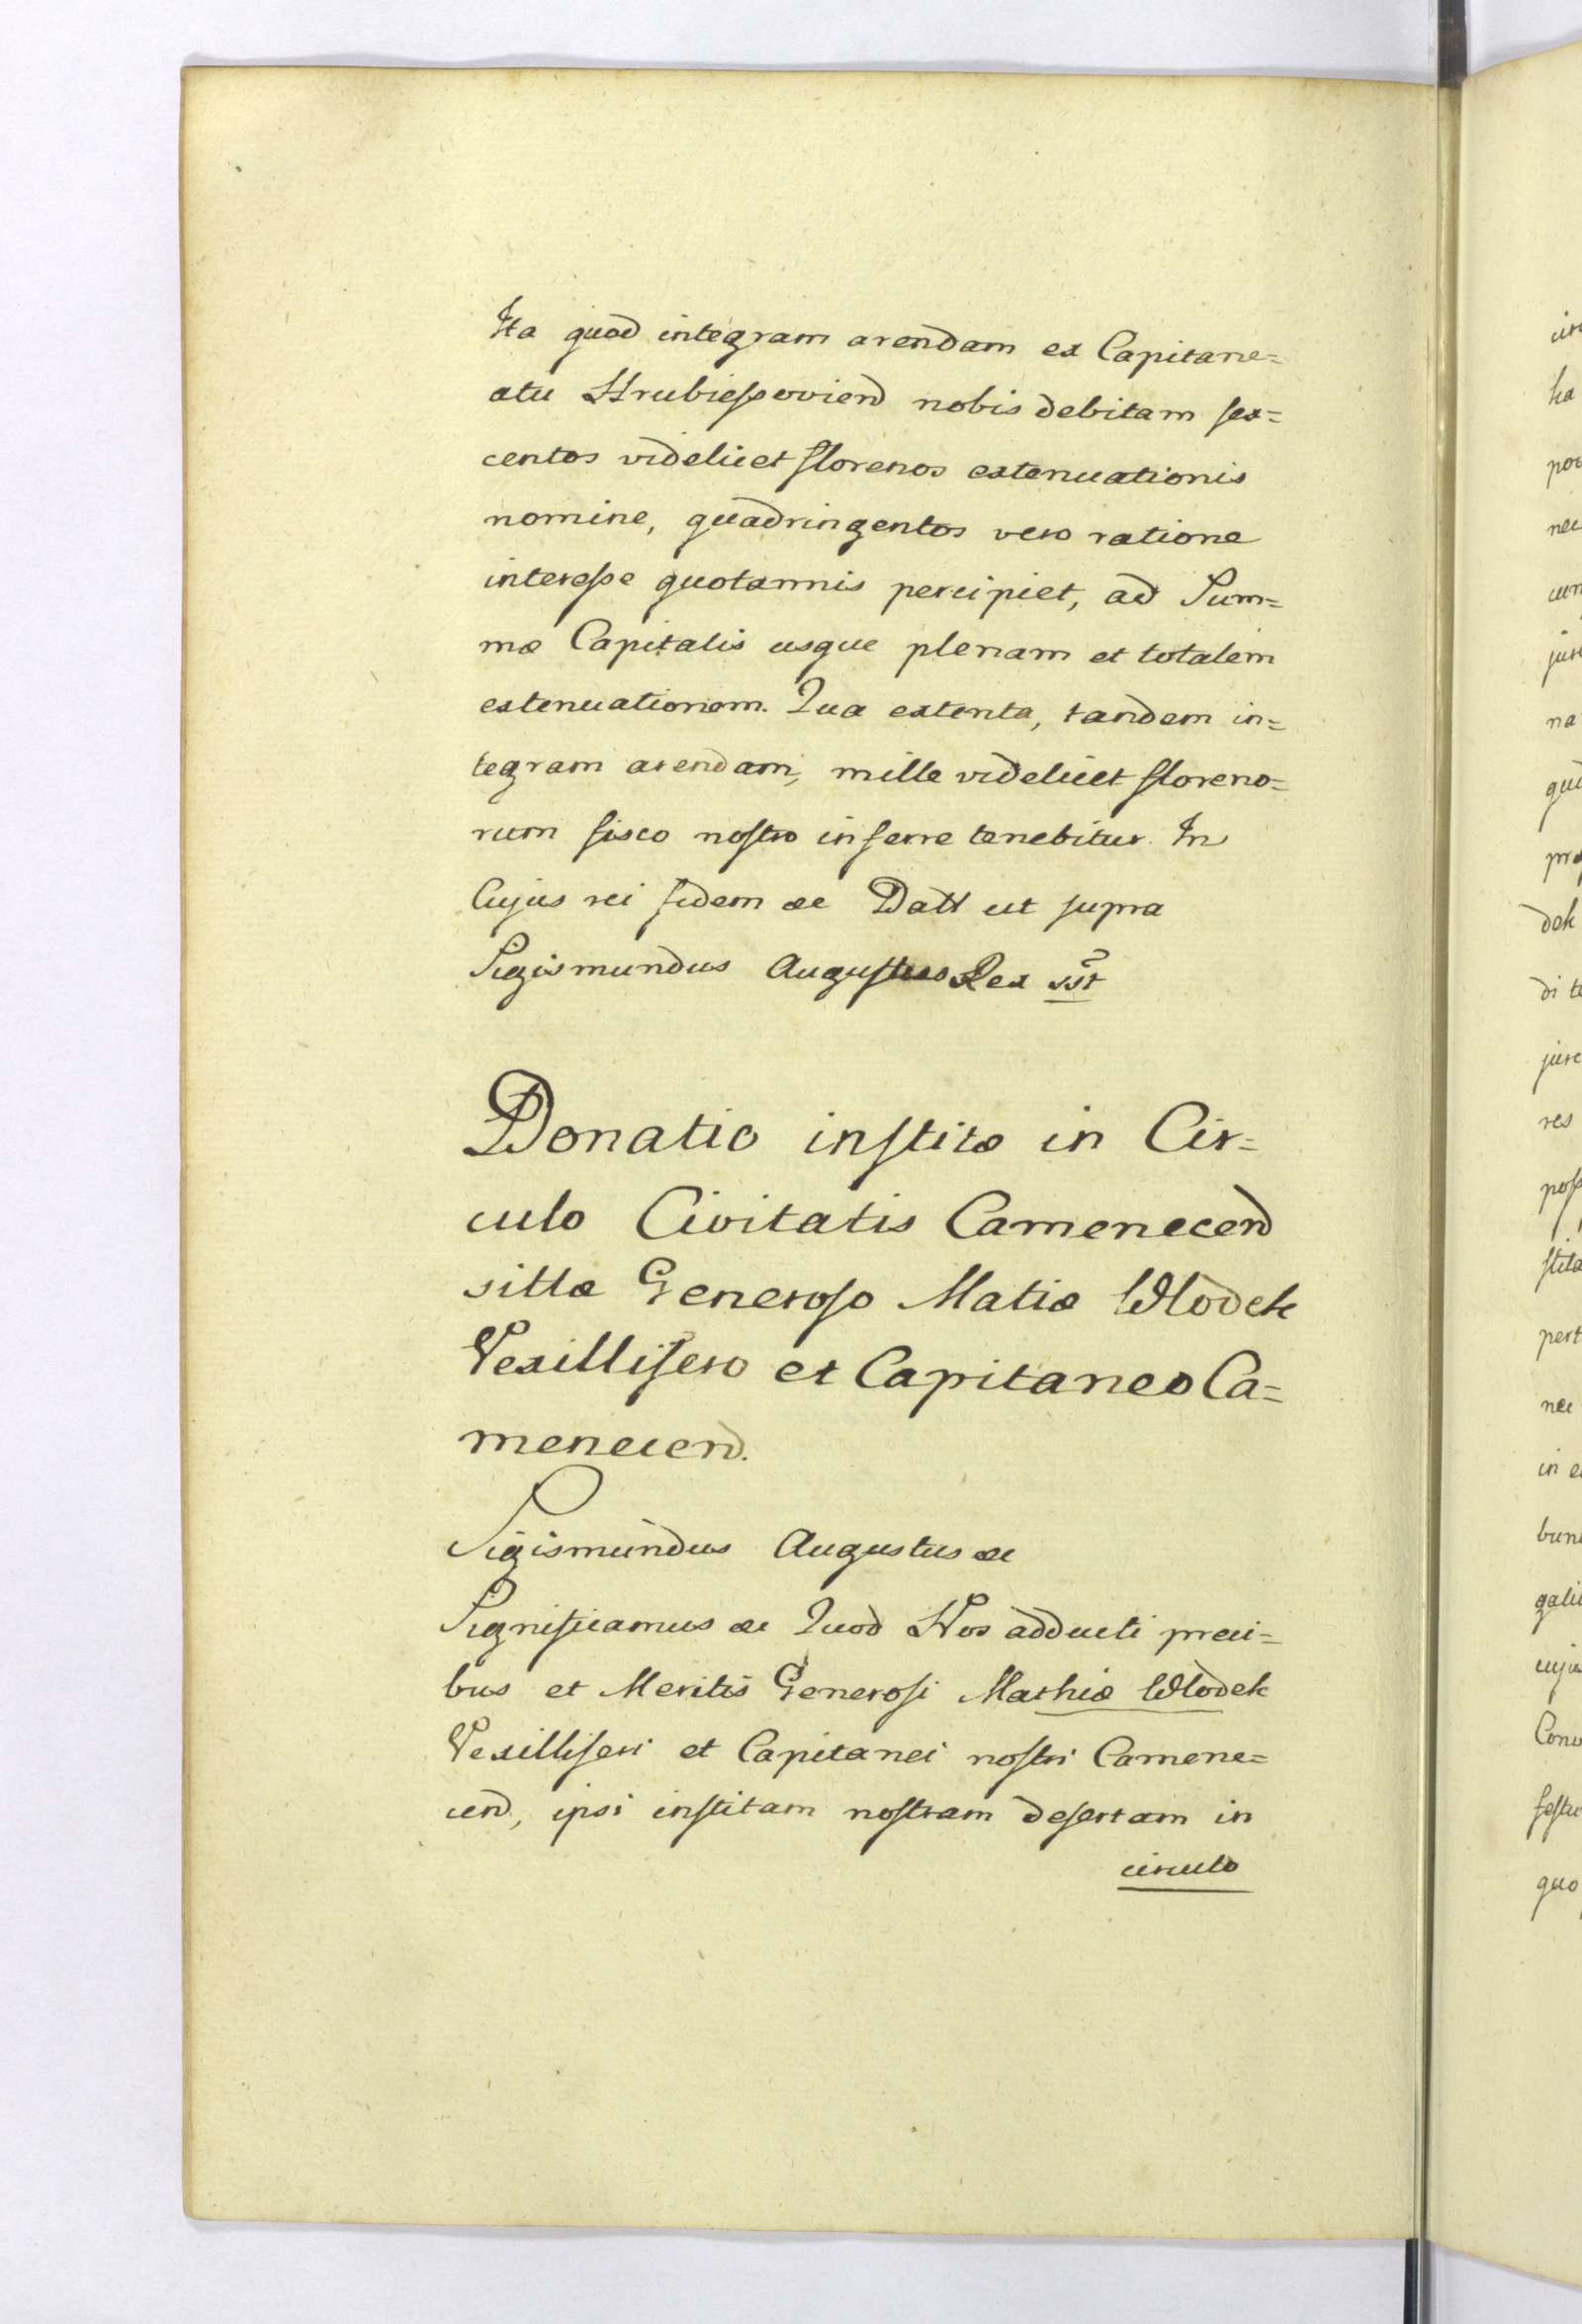 Ita quod integram arendam ex Capitane=
atu Hrubieszoviend nobis debitam sex=
centos videlicet florenos extenuationis
nomine, quadringentos vero ratione
interesse quotannis percipiet, ad Sum=
mæ Capitalis usque plenam et totalem
extenuationem. Qua extenta, tandem in=
tegram arendam, mille videlicet floreno=
rum fisco nostro inferre tenebitur. In
Cujus rei fidem &c Datt ut supra
Sigismundus Augustus Rex sst
Donatio institæ in Cir=
culo Civitatis Camenecend
sittæ Generoso Matiæ Wlodek
Vexillifero et Capitaneo Ca=
menecend.
Sigismundus Augustus &c
Significamus &c Quod Nos adducti preci=
bus et Meritis Generosi Mathiæ Wlodek
Vexilliferi et Capitanei nostri Camene=
cend, ipsi institam nostram desertam in
circulo
cir
ha
nec
cum
na
dek
di te
jure
res
nec
in e
quo